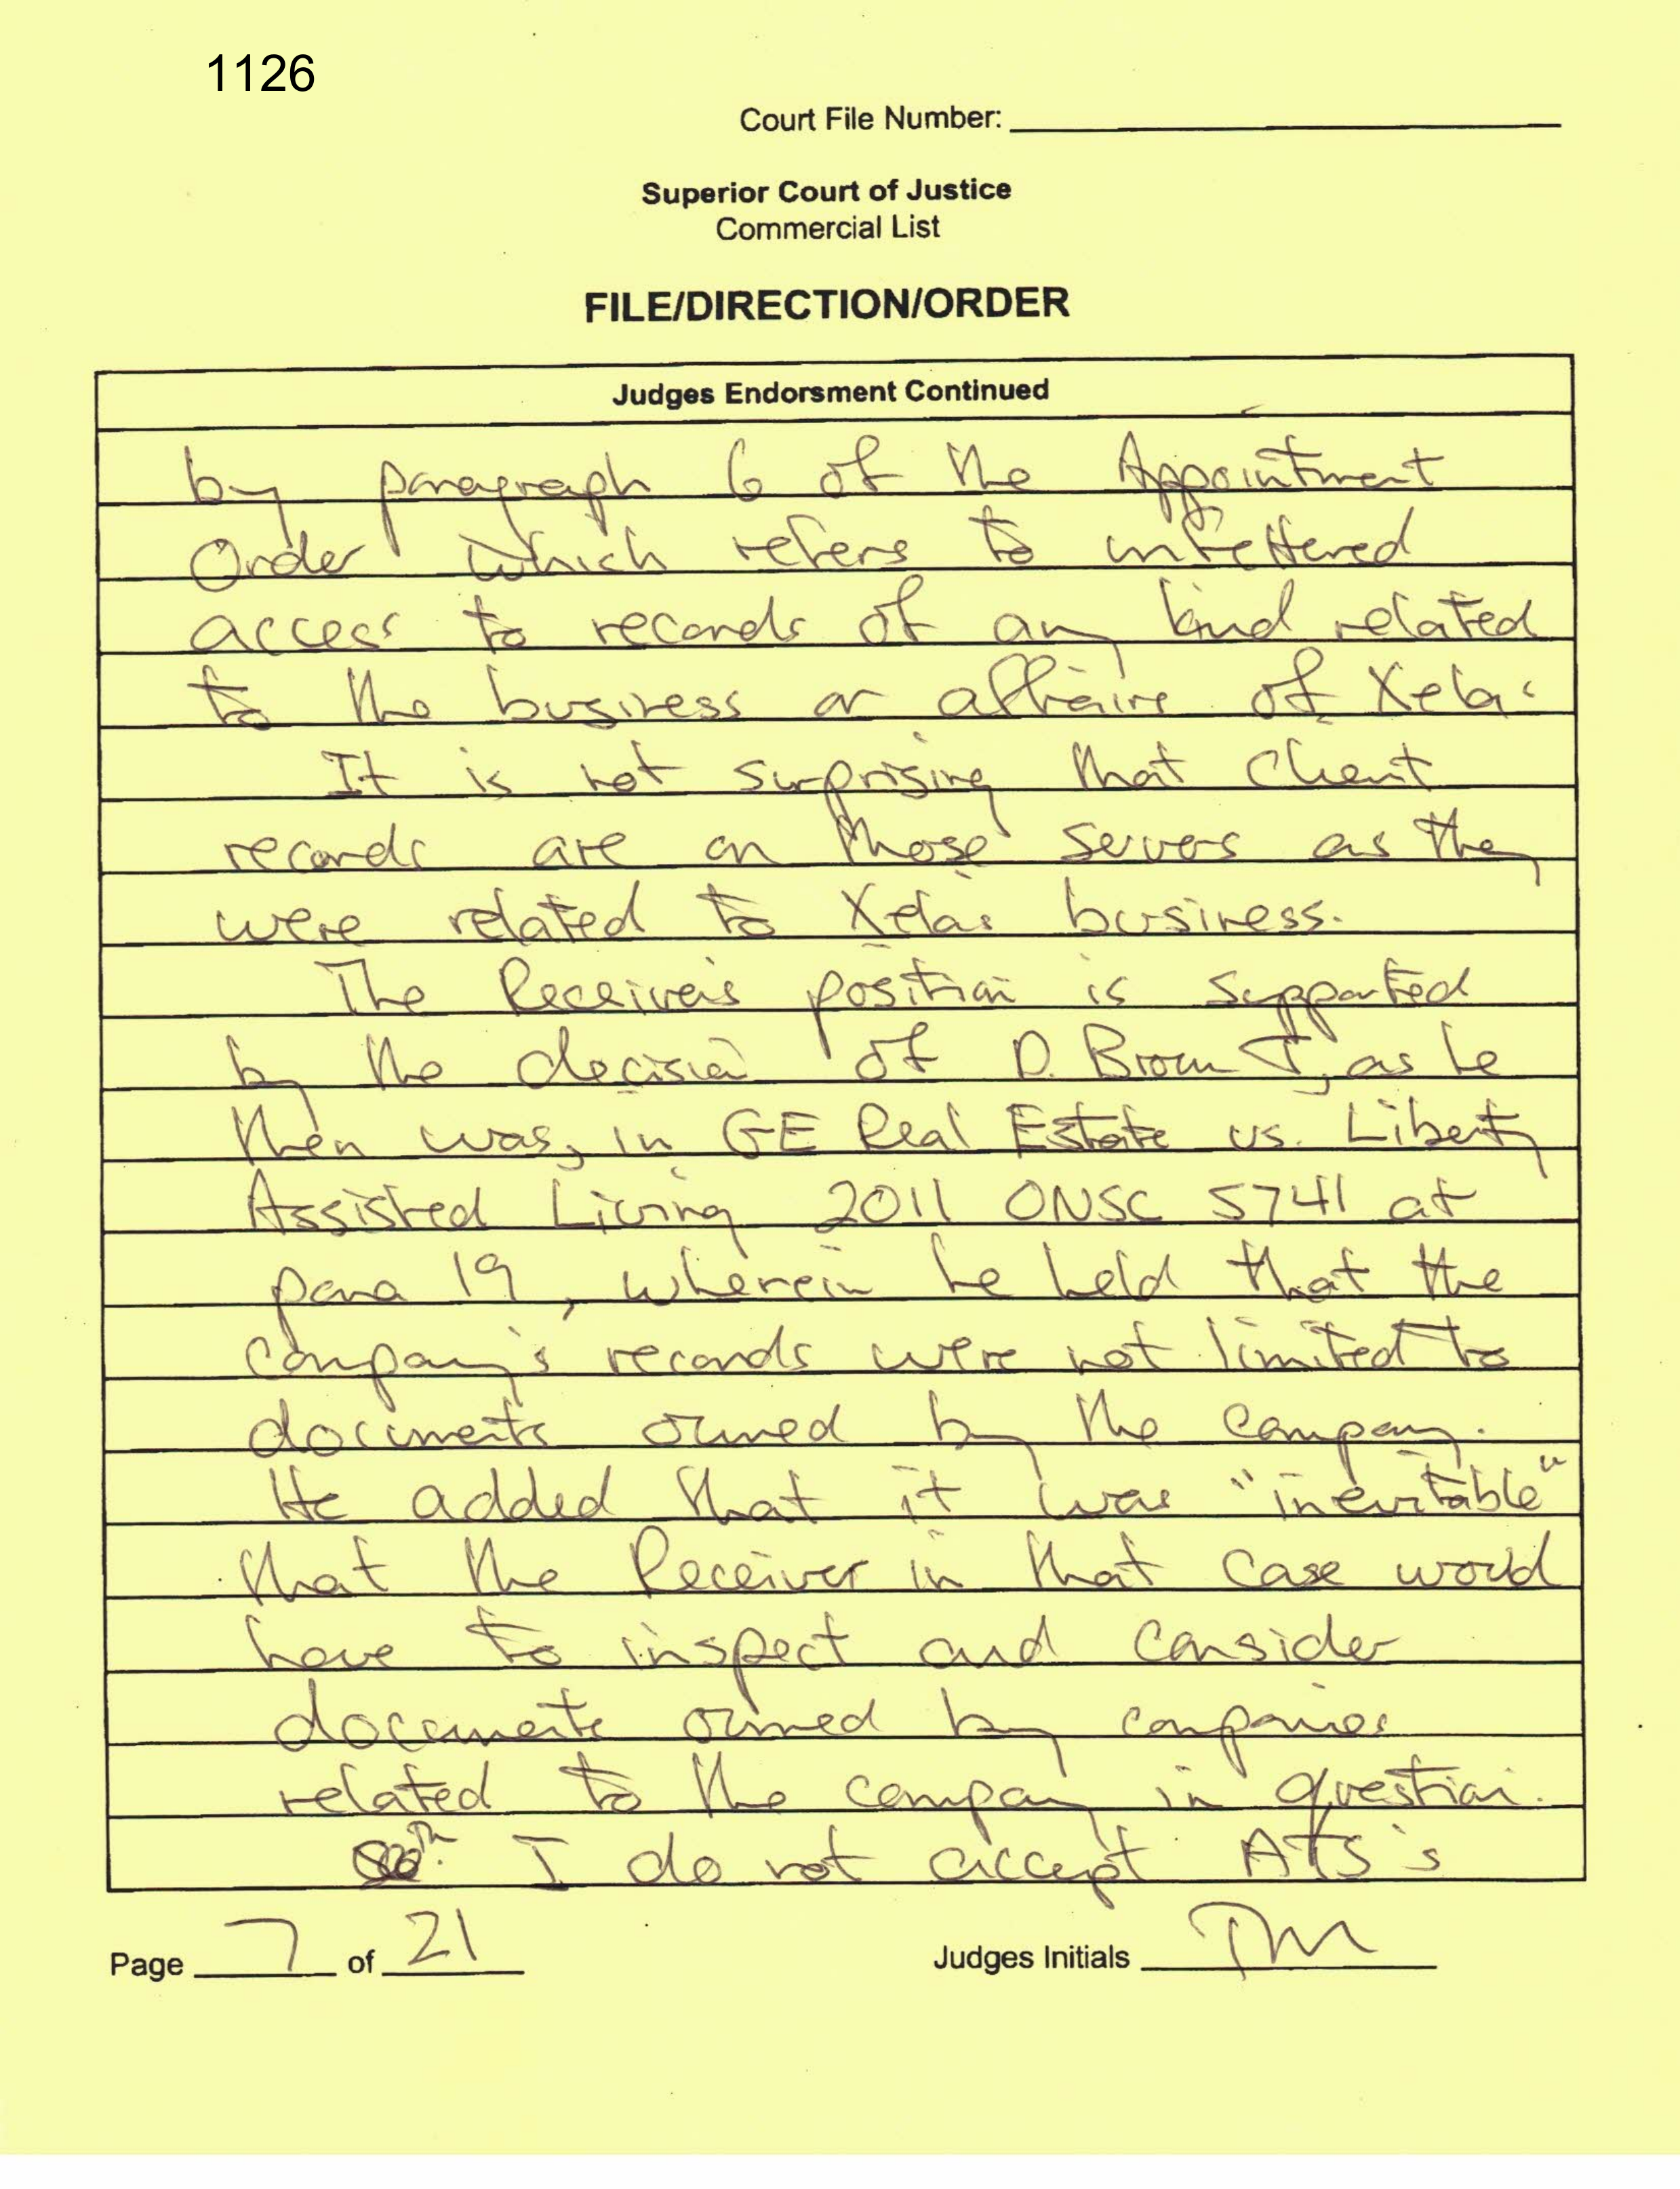 1126
Court File Number:
Superior Court of Justice
Commercial List
FILE/DIRECTION/ORDER
Judges Endorsment Continued
by paragraph 6 of the Appointment
Order which refers to unfettered
access to records of any kind related
to the business or affairs of Xela.
It is not surprising that client
records are on those servers as they
were related to Xela's business.
The Receiver's position is supported
by the decision of D. Brown J, as he
then was, in GE Real Estate vs. Liberty
Assisted Living 2011 ONSC 5741 at
para 19, wherein he held that the
company's records were not limited to
documents owned by the company.
He added that it was "inevitable"
that the Receiver in that case would
have to inspect and consider
documents owned by companies
related to the company in question.
I do not accept ATS's
Page 7 of 21
Judges Initials TM